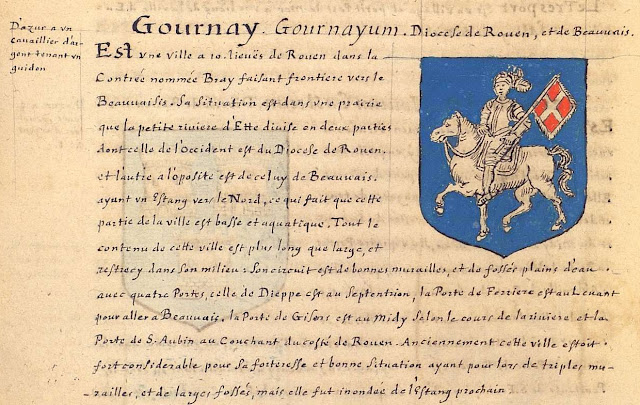 Gournay. Gournayum. Diocese de Rouen, et de Beauvais.
D'azur a vn
cavaillier d'ar
gent tenant vn
guidon
Est vne ville a 10. lieuës de Rouen dans la
Contrée nommée Bray faisant frontiere vers le
Beauvaisis. Sa situation est dans vne prairie
que la petite riviere d'Ette divise en deux parties
dont celle de l'Occident est du Diocese de Rouen.
et lautre a l'oposite est de celuy de Beauvais.
ayant vn Estang vers le Nord, ce qui fait que cette
partie de la ville est basse et aquatique. Tout le
contenu de cette ville est plus long que large, et
restrecy dans son milieu: son circuit est de bonnes murailles, et de fossés plains d'eau
avec quatre Portes, celle de Dieppe est au Septentrion, la Porte de Ferriere est au Levant
pour aller a Beauvais. la Porte de Gisors est au Midy selon le cours de la riviere et la
Porte de S. Aubin au Couchant du costé de Rouen. Anciennement cette ville estoit
fort considerable pour sa forteresse et bonne situation ayant pour lors de triples mu-
railles, et de larges fossés, mais elle fut inondée de l'Estang prochain